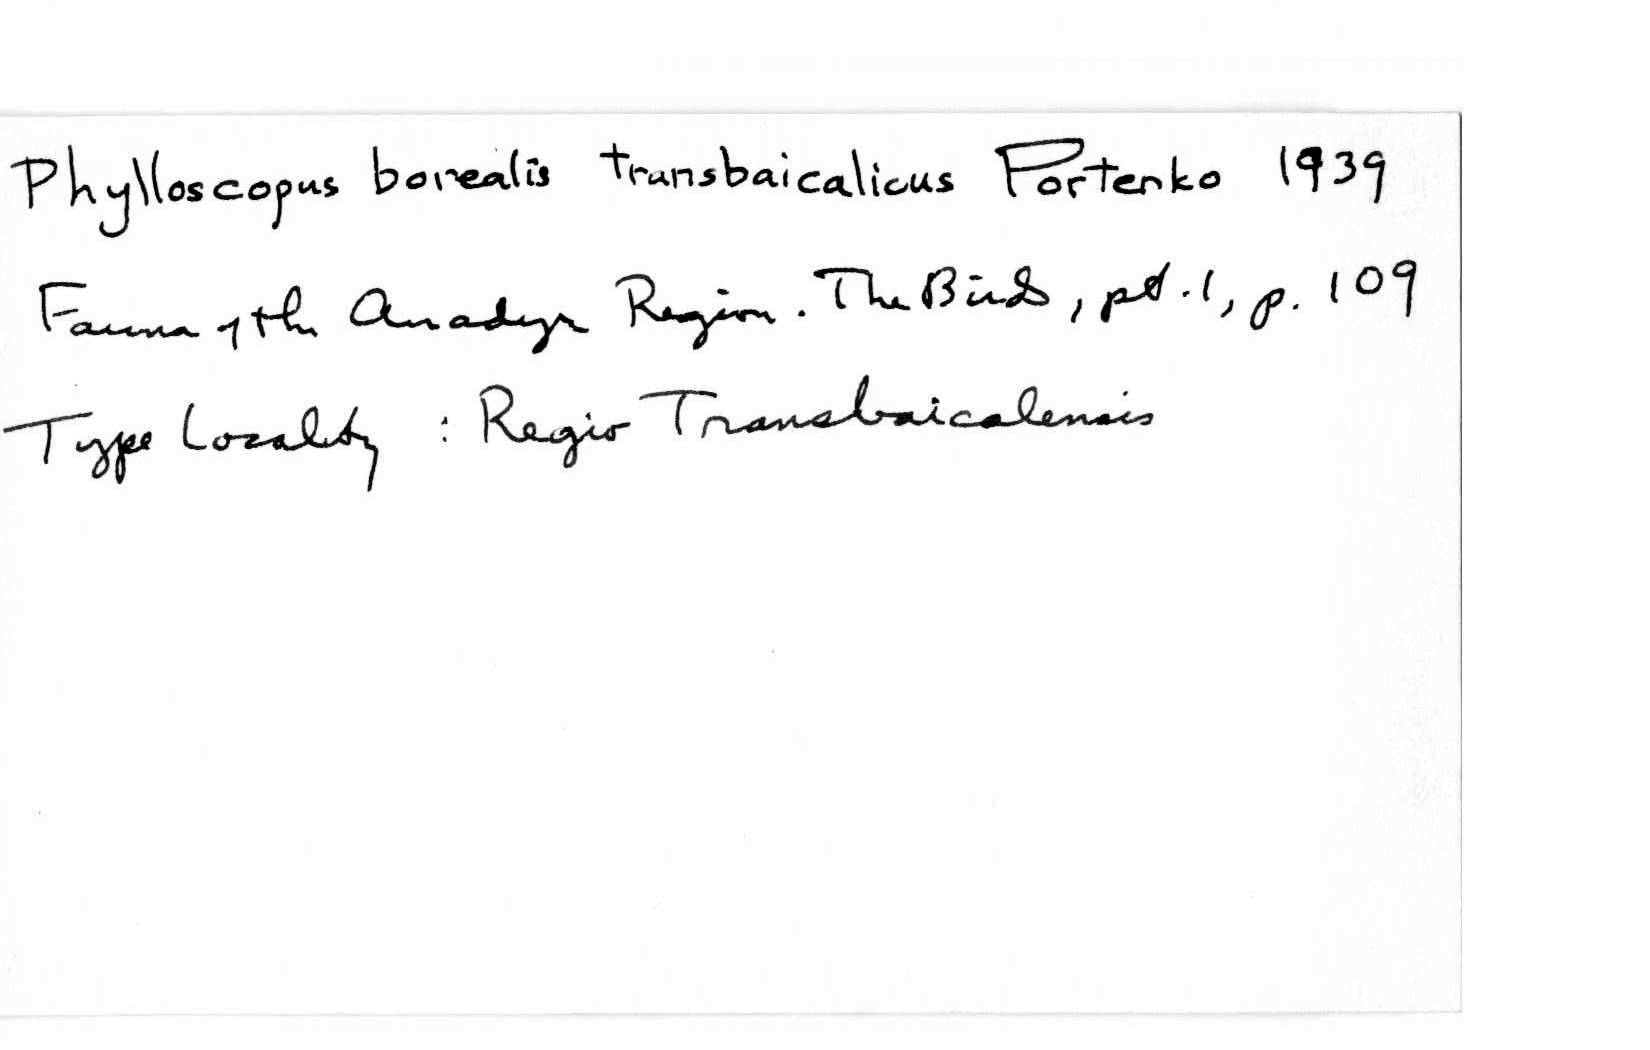 Phylloscopus borealis transbaicalicus Portenko 1939
Fauna of the Anadyr Region. The Birds, pt. 1, p. 109
Type Locality : Regio Transbaicalensis